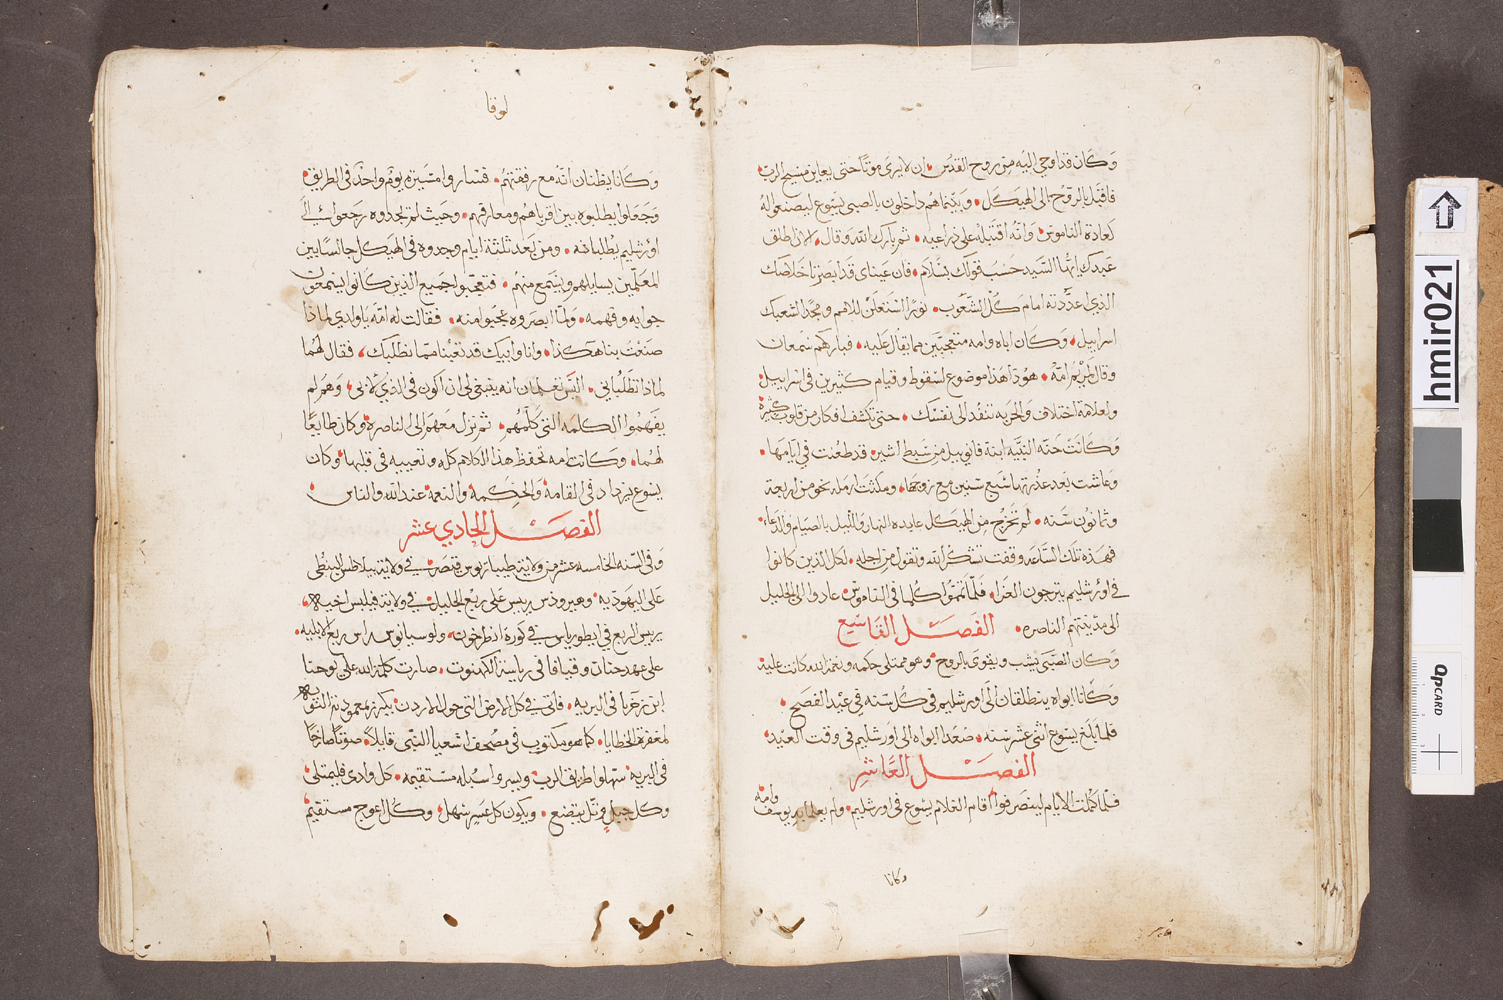 وكان قد اوحي اليه من روح القدس ان لا يرى موتًا حتى يعاين مسيح الرب
فاقبل بالروح الى الهيكل وبينما هم داخلون بالصبي يسوع ليصنعوا له
كعادة الناموس وانه اقتبله على ذراعيه ثم بارك الله وقال الان اطلق
عبدك ايها السيد حسب قولك بسلام فان عيناي قد ابصرتا خلاصك
الذي اعددته امام كل الشعوب نورًا استعلن للامم ومجدًا لشعبك
اسراييل وكان اباه وامه متعجبين مما يقال عليه فباركهم سمعان
وقال لمريم امه هوذا هذا موضوع لسقوط وقيام كثيرين في اسراييل
ولعلامة اختلاف والحربه تنفد الى نفسك حتى تكشف افكار من قلوب كثيرة
وكانت حنه النبيه ابنة فانوييل من سبط اشير قد طعنت في ايامها
وعاشت بعد عذرتها سبع سنين مع زوجها ومكثت ارمله نحو من اربعة
وثمانون سنه لم تخرج من الهيكل عابده النهار والليل بالصيام والدعا
فهذه تلك الساعه وقفت تشكر الله وتقول من اجله لكل الذين كانوا
في اورشليم يترجون العزا فلما تمموا كلما في الناموس عادوا الى الجليل
الى مدينتهم الناصره الفصل التاسع
وكان الصبي يشب ويقوى بالروح وهو ممتلي حكمه ونعمة الله كانت عليه
وكانا ابواه ينطلقان الى اورشليم في كل سنه في عيد الفصح
فلما بلغ يسوع اثني عشر سنه صعدا ابواه الى اورشليم في وقت العيد
الفصل العاشر
فلما كملت الايام لينصرفوا اقام الغلام يسوع في اورشليم ولم يعلما به يوسف وامه
وكانا
لوقا
وكانا يظنان انه مع رفقتهم فساروا مسيرة يوم واحد في الطريق
وجعلوا يطلبوه بين اقرباهم ومعارفهم وحيث لم يجدوه رجعوا الى
اورشليم يطلبانه ومن بعد ثلثة ايام وجدوه في الهيكل جالسًا بين
المعلمين يسايلهم ويستمع منهم فتعجبوا جميع الذين كانوا يسمعون
جوابه وفهمه ولما ابصروه عجبوا منه فقالت له امه يا ولدي لماذا
صنعت بنا هكذا وانا وابيك قد تعبنا مما نطلبك فقال لهما
لماذا تطلباني اليس تعلمان انه ينبغي لي ان اكون في الذي لابي وهم لم
يفهموا الكلمه التي كلمهم ثم نزل معهم الى الناصرة وكان طايعًا
لهما وكانت امه تحفظ هذا الكلام كله وتعييه في قلبها وكان
يسوع يزداد في القامة والحكمة والنعمة عند الله والناس
الفصل الحادي عشر
وفي السنه الخامسه عشر من ولاية طيباريوس قيصر في ولاية بيلاطس البنطي
على اليهودية وهيرودس رييس على ربع الجليل في ولاية فيلبس اخيه
رييس الربع في ايطورياس في كورة اطراخونه ولوسيانوس راس ربع الابليه
على عهد حنان وقيافا في رياسة الكهنوت صارت كلمة الله على يوحنا
ابن زخريا في البريه فاتى في كل الارض التي حول الاردن يكرز بمعمودية التوبه
لمغفرة الخطايا كما هو مكتوب في مصحف اشعيا النبي قايلًا صوتًا صارخًا
في البرية سهلوا طريق الرب ويسروا سبله مستقيمه كل وادي فليمتلي
وكل جبل وتل يتضع ويكون كل عسر سهل وكل اعوج مستقيم
hmir021
QPCARD